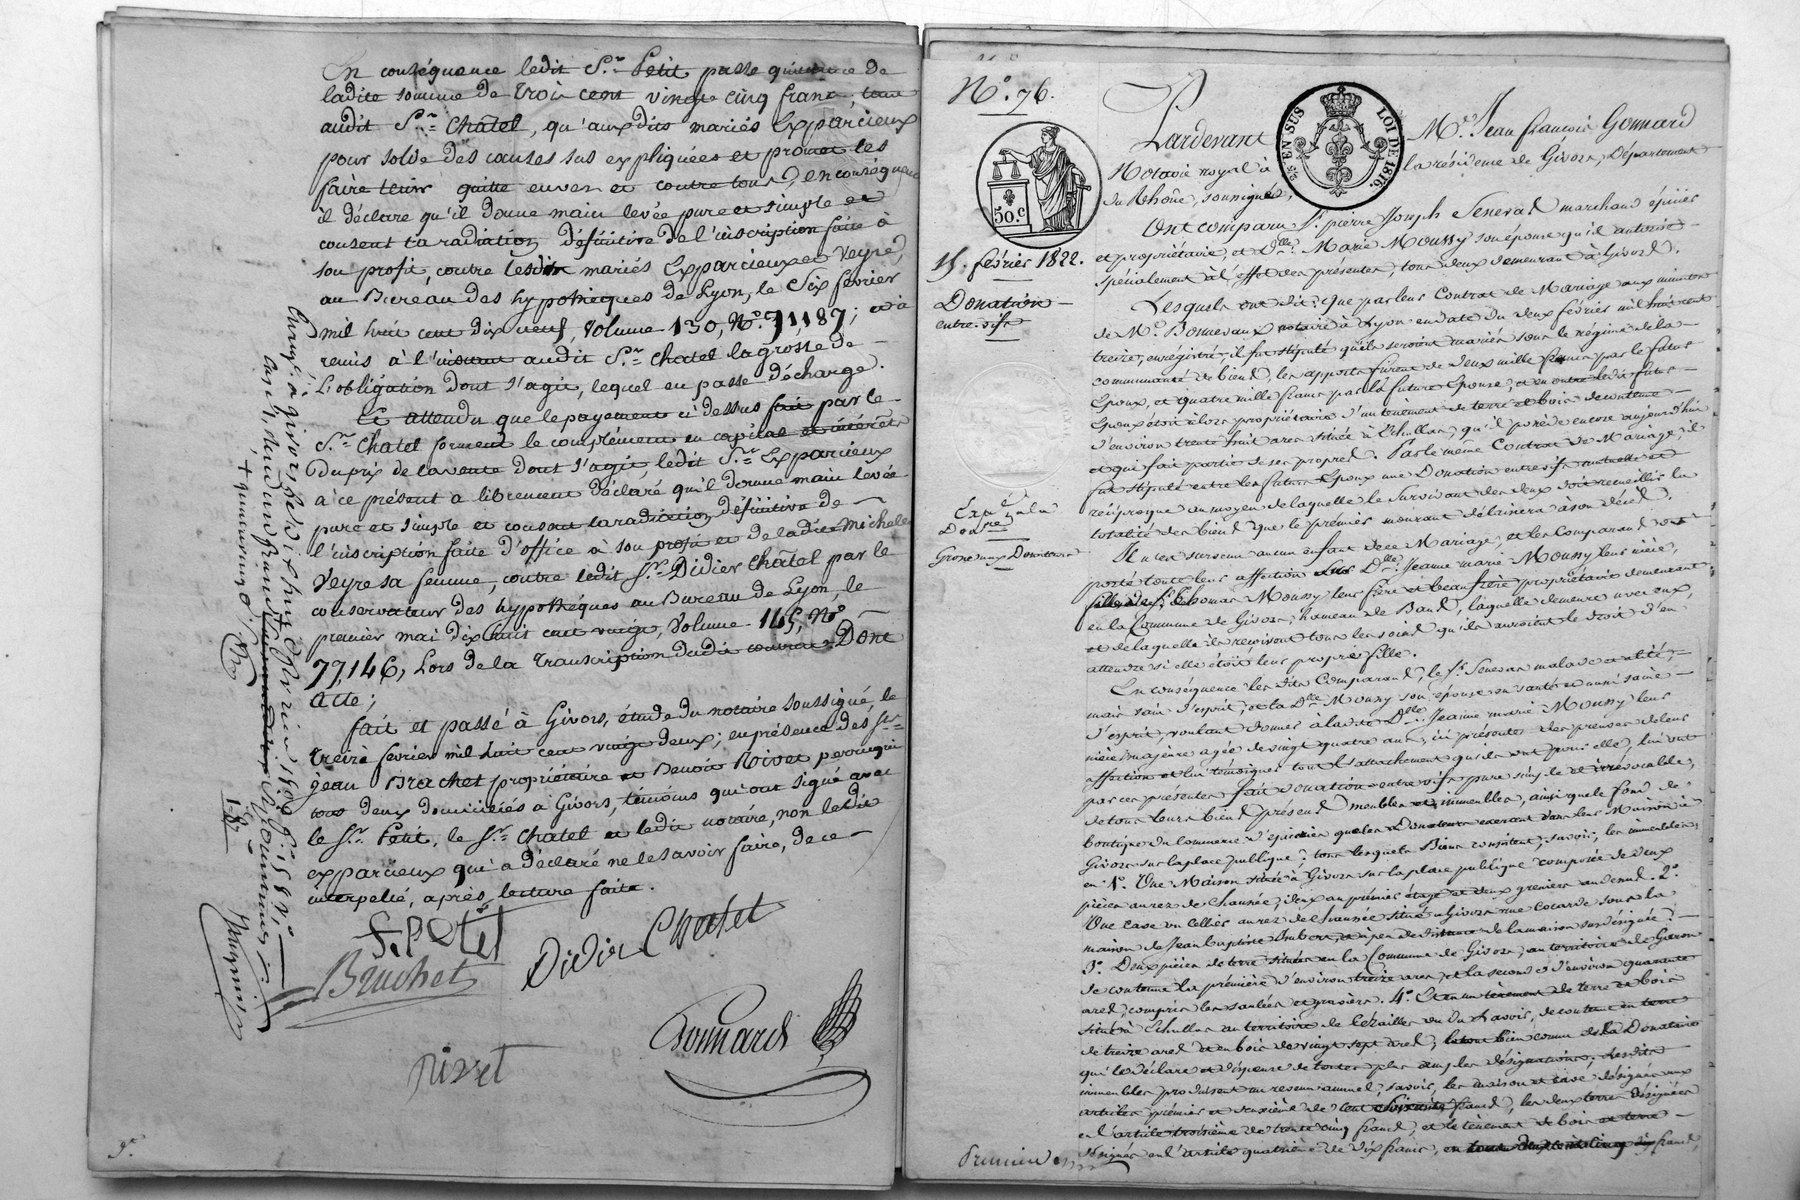 En conséquence ledit S.r Petit passe quittance de
ladite somme de trois cent vingt cinq francs, tant
audit S.r Châtel, qu'auxdits mariés Exparcieux
pour solde des causes sus expliquées et promet les
faire tenir quitte envers et contre tous, en conséquence
il déclare qu'il donne main levée pure et simple et
consent la radiation définitive de l'inscription faite à
son profit, contre lesdits mariés Exparcieux et Veyre,
au Bureau des hypothèques de Lyon, le Six février
mil huit cent dix neuf, Volume 130, N.o 71,187; et à
remis à l'instant audit S.r Chatel la grosse de
L'obligation dont s'agit, lequel en passe décharge.
Et attendu que le payement ci dessus fait par le
S.r Chatel forment le complément en capital et intérêts
Du prix de la vente dont s'agit, ledit S.r Exparcieux
à ce présent a librement déclaré qu'il donne main levée
pure et simple et consent la radiation définitive de
l'inscription faite d'office à son profit et de ladite Michele
Veyre sa femme, contre ledit S.r Didier Châtel par le
conservateur des hypothéques au Bureau de Lyon, le
premier mai dix huit cent vingt, Volume 145, N.o
77,146, Lors de la transcription dudit contrat. Dont
Acte;
fait et passé à Givors, étude du notaire soussigné, le
treize fevrier mil huit cent vingt deux; en présence des S.rs
jean Brachet propriétaire et Benoit Rivet perruquier
tous deux domiciliés à Givors, témoins qui ont signé avec
le S.r Petit, le S.r Chatel et ledit notaire, non ledit
exparcieux qui a déclaré ne le savoir faire, de ce
interpellé, après lecture faite.
f. Petit
Brachet
Didier Chatel
Gonnard
Rivet
N.o 76.
50.c
EN SUS
LOI DE 1816.
15. février 1822.
Donation
entre vifs
Grosse aux Donateurs
Pardevant M.e Jean françois Gonnard
Notaire royal à la résidence de Givors, Département
du Rhône, soussigné,
Ont comparu S.r pierre Joseph Seneval marchand épicier
et propriétaire, et D.lle Marie Moussy son épouse qu'il autorise
spécialement à l'effet des présentes, tous deux demeurant à Givors.
Lesquels ont dit: Que par leur Contrat de Mariage aux minutes
de M.e Bonnevaux notaire à Lyon en date du deux février mil huit cent
treize, enregistré, il fut stipulé qu'ils seroient mariés sous le régime de la
communauté de biens, les apports furent de deux mille francs par le futur
Epoux, et quatre mille francs par la future Epouse, et en outre ledit futur
Epoux étoit alors propriétaire d'un ténement de terre et bois de contenue
d'environ trente huit ares située à Echallas, qu'il possède encore aujourd'hui
et qui fait partie de ses propres. Par le même Contrat de Mariage, il
fut stipulé entre les futurs Epoux une Donation entre vifs mutuelle et
réciproque au moyen de laquelle le survivant des deux doit recueillir la
totalité des biens que le prémier mourant délaissera à son décès.
Il n'est survenu aucun enfant de ce Mariage, et les Comparans ont
porté toute leur affection sur D.lle Jeanne marie Moussy leur nièce,
fille de S.r thomas Moussy, leur frère et beau frère propriétaire demeurant
en la Commune de Givors, hameau de Bans, laquelle demeure avec eux,
et de laquelle ils reçoivent tous les soins qu'ils auroient le droit d'en
attendre si elle étoit leur propre fille.
En conséquence les dits Comparans, le S.r Seneval malade et alité,
mais sain d'esprit, et la D.lle Moussy son épouse en santé et aussi saine
d'esprit, voulant donner à ladite D.lle Jeanne marie Moussy leur
nièce majeure agée de vingt quatre ans, ici présente des preuves de leur
affection et lui témoigner tout l'attachement qu'ils ont pour elle, lui ont
par ces présentes fait donation entre vifs pure simple et irrévocable,
de tous leurs biens présens meubles et immeubles, ainsi que le fond de
boutique du commerce d'épicier que les Donateurs exercent dans leur Maison à
Givors sur la place publique; tous lesquels Biens consistent, savoir, les immeubles,
en 1.o Une Maison située à Givors sur la place publique composée de deux
pièces au rez de chaussée, deux au prémier étage et deux greniers au dessus. 2.o
Une cave ou cellier au rez de chaussée situé à Givors rue cocarde sous la
maison de Jean baptiste Imbert, et à peu de distance de la maison sus désignée;
3.o Deux pièces de terre situées en la Commune de Givors, au territoire de Gizon
de contenue la première d'environ treize ares, et la seconde d'environ quarante
ares, compris les saulées et graviers. 4.o Et en un ténement de terre et bois
situé à Echallas au territoire de
de treize ares et en bois de vingt sept ares, le tout bien connu de la Donataire
qui le déclare et dispense de toutes plus amples désignations. Lesdits
immeubles produisent un revenu annuel, savoir, les maison et cave désignés aux
articles prémier et deuxième de cent francs, les deux terres désignées
en l'article troisième de trente cinq francs, et le ténement de bois et terre
désigné en l'article quatrième de dix francs,